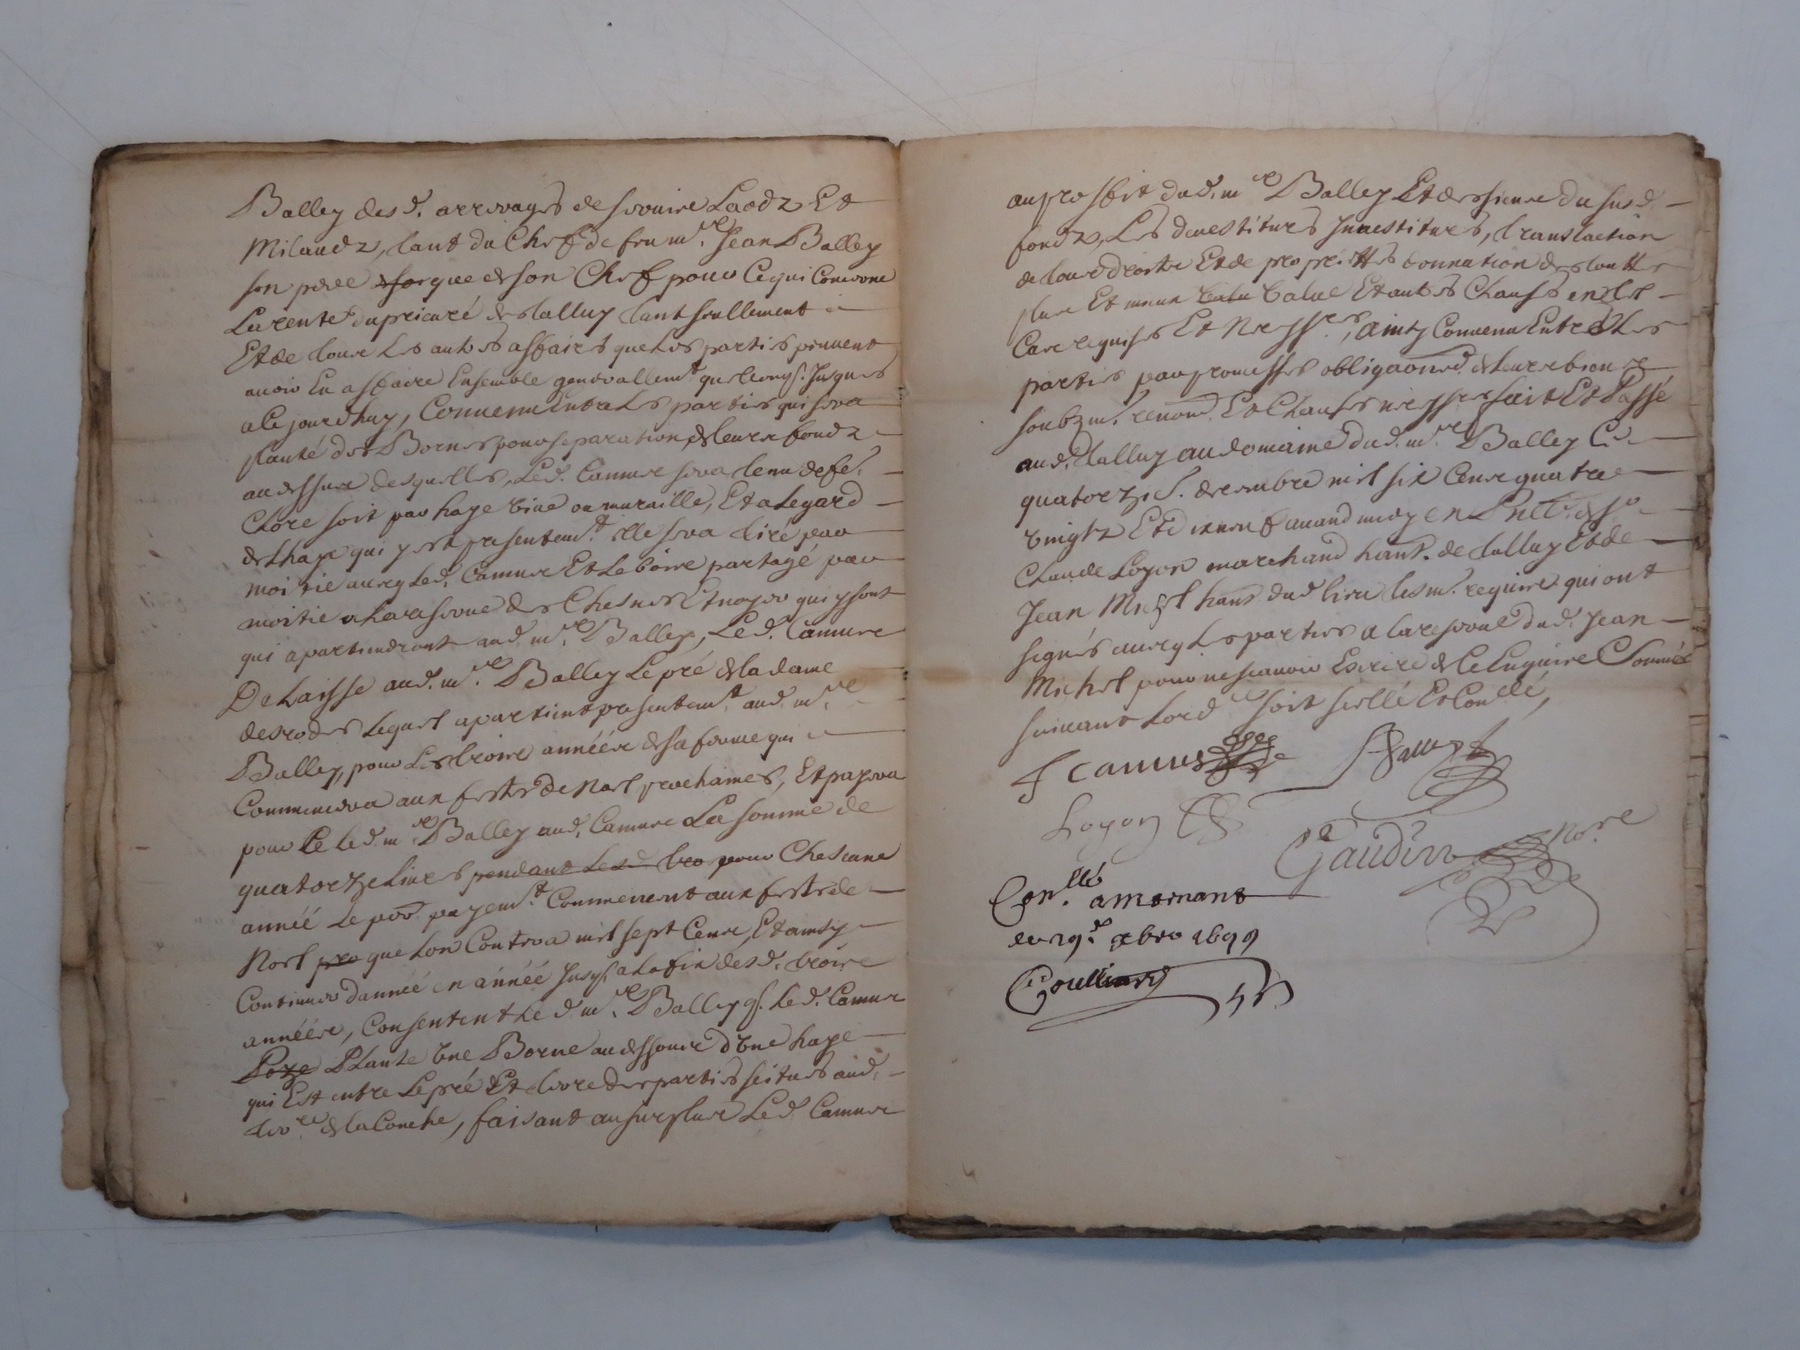 Balley des d. arrerages de servire Laodz Et
Milaudz, tant du Chef de feu mre. Jean Balley
son pere que de son Chef pour Ce qui Concerne
La rente du prieuré de talluy tant seullement
Et de tous Les autres affaires que Les parties peuvent
avoir Eu a faire Ensemble generallemt. quelconqs. Jusques
a Ce jourdhuy, Convenu Entre Les parties qui sera
planté des Bornes pour separation de leurs fondz
au dessus desquelles, Led. Camus sera tenu de se
Clore soit par haye vive ou muraille, Et a legard
de lhaye qui y est presentemt. elle sera tiré par
moitié avecq Led. Camus Et Le boire partagé par
moitié a la reserve des Chesnes Et noyer qui y sont
qui apartiendront aud. mre. Balley, Led. Camus
Delaisse aud. mre. Balley Le pré de la dame
desrodes Lequel apartient presentemt. aud. mre.
Balley, pour Les troire annéére de sa ferme qui
Commencera aux festes de Noel prochaines, Et payera
pour Ce led. mre. Balley aud. Camus La somme de
quatorze livres pendant Les d. tro pour Chescune
année Le per. payemt. Commencent aux festes de
Noel pro que Lon Contera mil sept Cens, Et ainsy
Continuer dannéé en annéé Jusqs. a La fin desd. troire
annéére, Consentent Le d. mre. Balley q. Le d. Camus
Poze Plante vne Borne au dessous dvne haye
qui Est entre Le pré Et terre des parties scitues aud.
terre. de la Conche, faisant au surplus Le d. Camus
au proffit dud. mre. Balley Et des siens du susd.
fondz, Les devestitures Jnvestitures, translaction
de tous droitz Et de proprietés donnation de toutte
plus Et moins value Et autres Chauses en tel
Cas requises Et Nesssres, ainsy Convenu Entre Les
parties par promesses obligaons. de leurs biens
soubzm. renond. Et Chauses nessres fait Et Passé
aud. talluy au domaine dud. mre. Balley Ce
quatorzie. decembre mil six Cens quatre
vingtz Et dixneuf avand midy en Pnce. de sr.
Claude Loyon marchand hant. de talluy Et de
Jean Michel hant dud. lieu tesm. require qui ont
signés avecq Les parties a la reserve dud. Jean
Michel pour ne scavoir Escrire de Ce Enquire Sommés
suivant Lordce soit scellé Et Conllé,
F Camus
Balley
Loyon
Gaudin Nore
Conllé a mornant
le 29e. xbre 1699
Goullioud